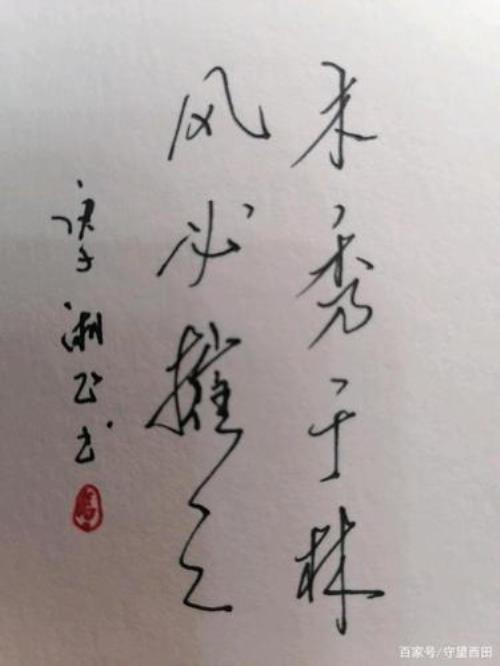 木秀于林
风必摧之
湘正书
百家号/守望西田